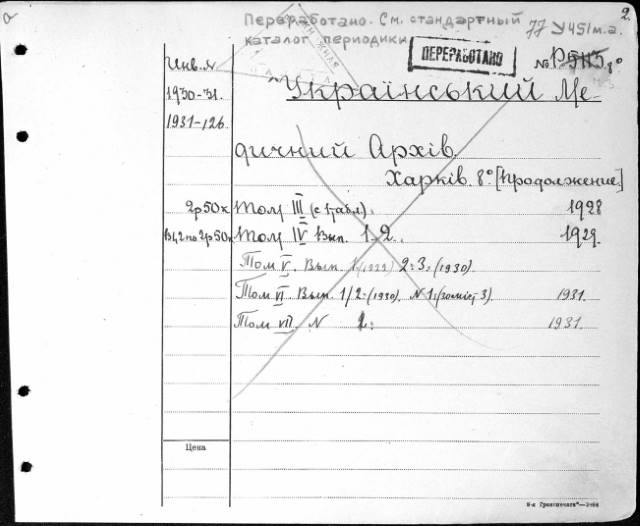 2.
Переработано. См. стандартный
каталог периодики
77 У451 м.а.
ПЕРЕРАБОТАНО
№ 8°
Инв. №
1930-31.
1931-126.
Український Ме-
дичний Архів.
Харків. 8° [продолжение]
2р50к Том III (с табл). 1928
В1,2 по 2р50к Том IV Вып. 1. 2. 1929.
Том V. Вып. 1 2-3. (1930).
Том VI. Вып. 1/2. (1930). N 1. (замість 3) 1931.
Том VII. N 1931.
Цена